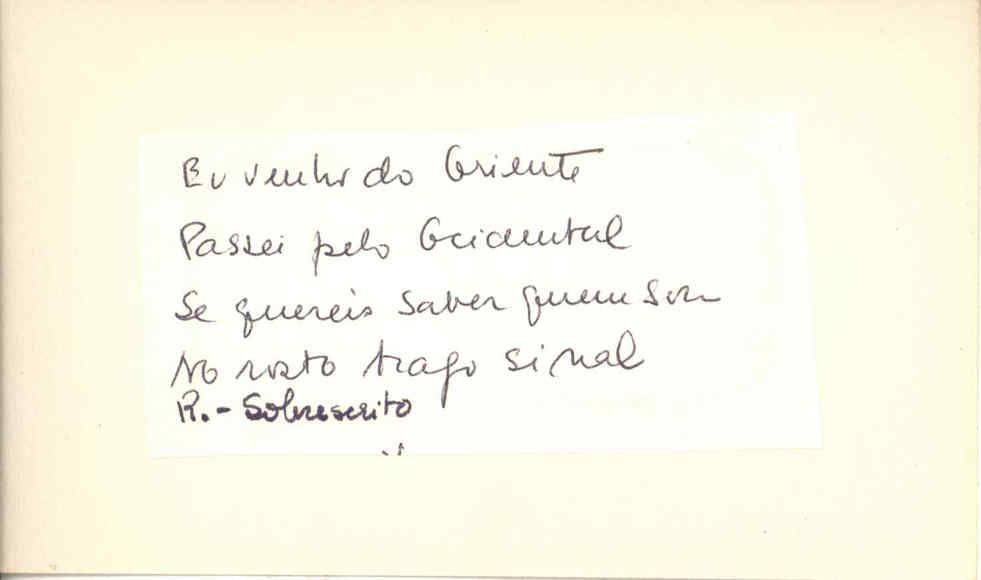 Eu venho do Oriente
Passei pelo Ocidental
Se quereis saber quem sou
No rosto trago sinal
R.- Sobrescrito